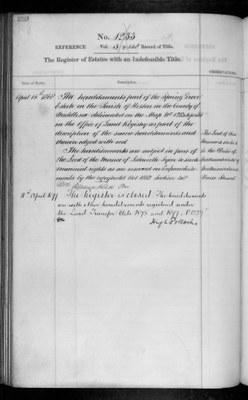 No. 1255
REFERENCE Vol. Record of Title.
The Register of Estates with an Indefeasible Title.
Date of Entry.
Description.
OBSERVATIONS.
April 15th 1868
The hereditaments part of the Spring Grove
Estate in the Parish of Heston in the County of
Middlesex delineated on the Map No.
in the Office of Land Registry as part of the
description of the same hereditaments and
thereon edged with red
The hereditaments are subject in favor of
the Lord of the Manor of Isleworth Syon to such
manorial rights as are reserved on Enfranchise-
ments by the Copyhold Act 1852 Section 48
The Lord of the
Manor
is the Duke of
Northumberland
Northumberland
House Strand
April 1899
The Register is closed The hereditaments
are with other hereditaments registered under
the Land Transfer Acts 1875 and 1897